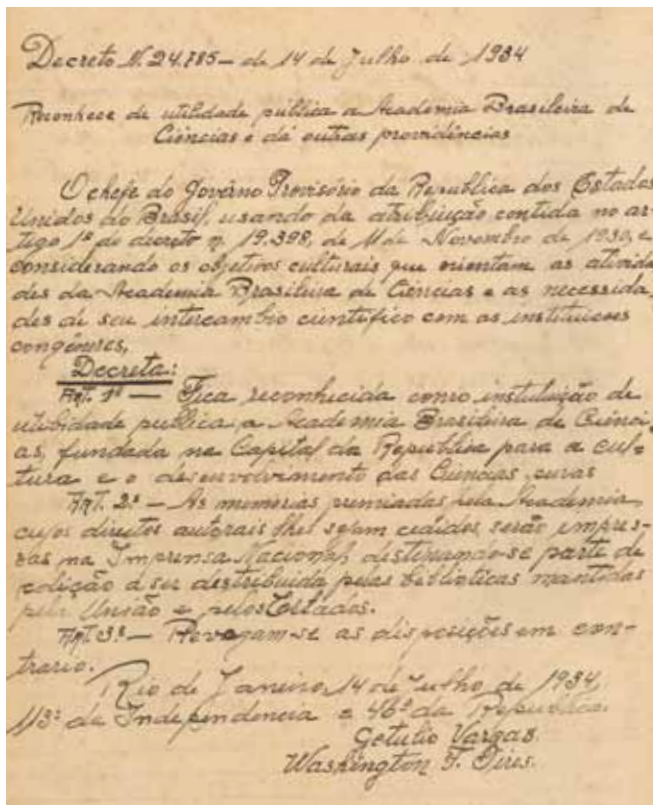 Decreto N. 24.785 - de 14 de Julho de 1934
Reconhece de utilidade pública a Academia Brasileira de
Ciências e dá outras providências
O chefe do Govêrno Provisório da Republica dos Estados
Unidos do Brasil, usando da atribuição contida no ar-
tigo 1º do decreto n. 19.398, de 11 de Novembro de 1930, e
considerando os objetivos culturais que orientam as ativida
des da Academia Brasileira de Ciencias e as necessida,
des de seu intercambio cientifico com as instituicoes
congeneres,
Decreta:
Art. 1º — Fica reconhecida como instituição de
utilidade publica, a Academia Brasileira de Ciênci-
as, fundada na Capital da Republica para a cul-
tura e o desenvolvimento das Ciencias puras
Art. 2º — As memorias premiadas pela Academia,
cujos direitos autorais lhes sejam cedidos, serão impres-
sas na Imprensa Nacional, destinando-se parte da
edição a ser distribuida pelas bibliotecas mantidas
pela União e pelos Estados.
Art. 3º — Revogam-se as disposições em con-
trario.
Rio de Janeiro, 14 de Julho de 1934,
113º da Independencia e 46º da Republica.
Getulio Vargas.
Washington F. Pires.